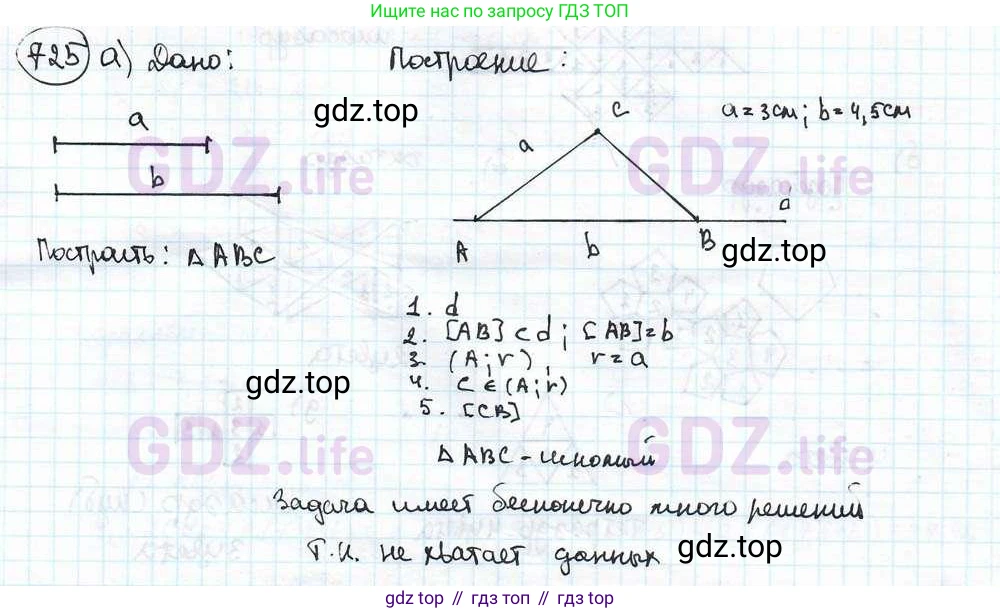 Ищите нас по запросу ГДЗ ТОП
725 а) Дано: Построение:
gdz.top
a = 3 см; b = 4,5 см
a
b
C
a
A
b
B
d
Построить: △ABC
gdz.top
1. d
2. [AB] ⊂ d; [AB] = b
3. (A; r), r = a
gdz.top
4. C ∈ (A; r)
5. [CB]
△ABC - искомый
Задача имеет бесконечно много решений
т.к. не хватает данных
gdz.top
GDZ.life
GDZ.life
GDZ.life
GDZ.life
gdz top // гдз топ // gdz.top